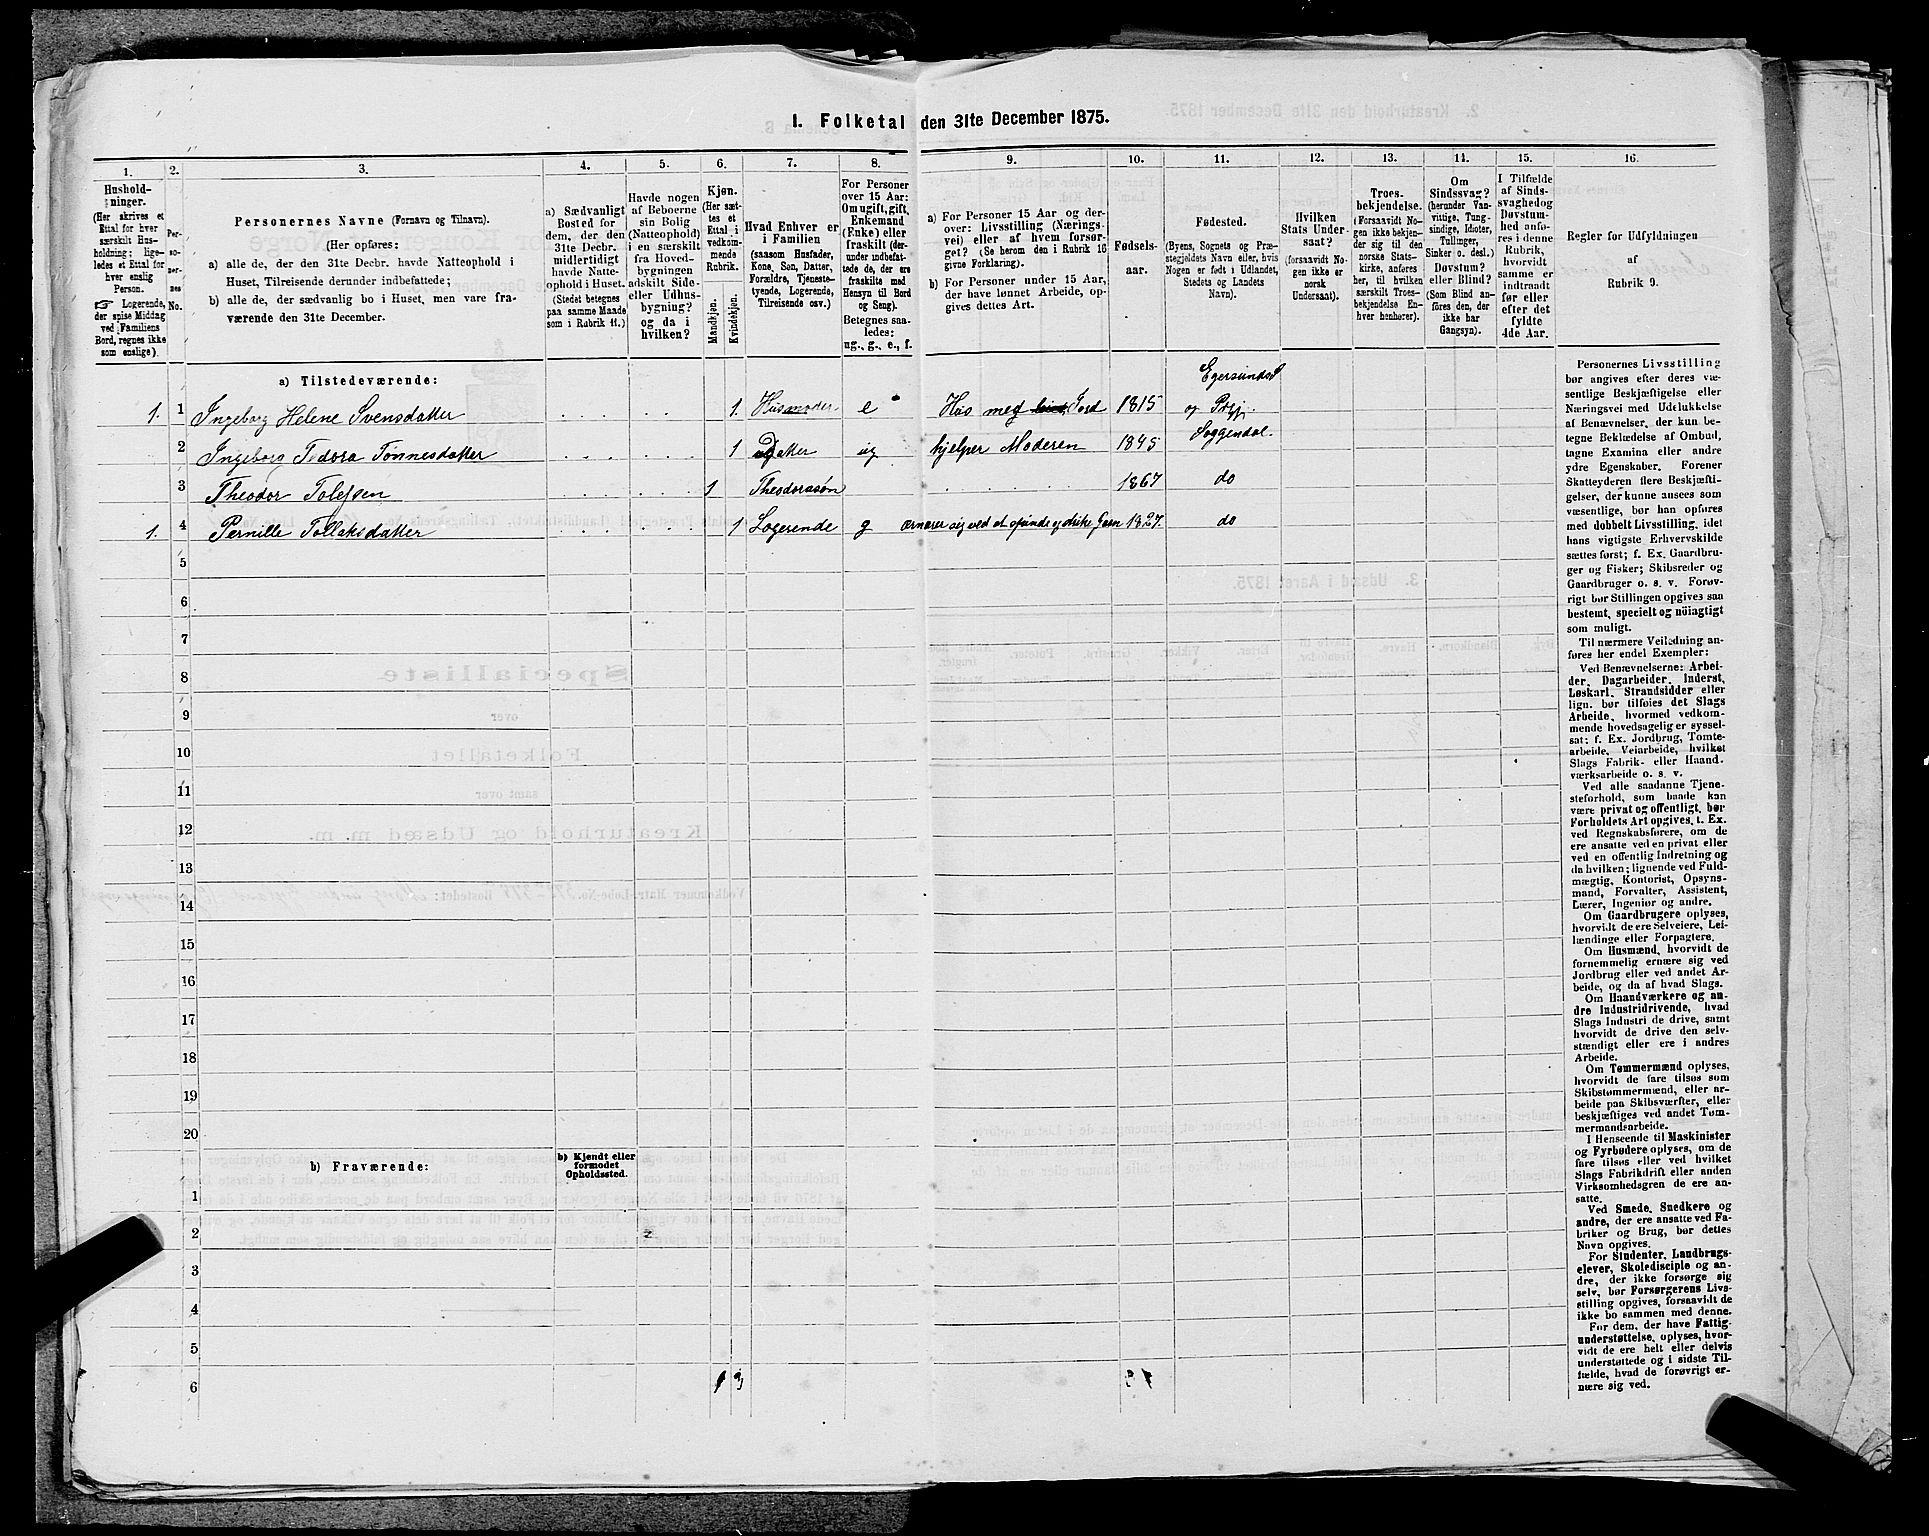 1. Folketal den 31te December 1875.
1. 2. 3. 4. 5. 6. 7. 8. 9. 10. 11. 12. 13. 14. 15. 16.
Hushold-
ninger.
(Her skrives et
Ettal for hver
særskilt Hus-
holdning; lige-
ledes et Ettal for
hver enslig
Person.
☞ Logerende,
der spise Middag
ved Familiens
Bord, regnes ikke
som enslige).
Per-
so-
ner-
nes
No.
Personernes Navne (Fornavn og Tilnavn).
(Her opføres:
a) alle de, der den 31te Decbr. havde Natteophold i
Huset, Tilreisende derunder indbefattede;
b) alle de, der sædvanlig bo i Huset, men vare fra-
værende den 31te December.
a) Sædvanligt
Bosted for
dem, der den
31te Decbr.
midlertidigt
havde Natte-
ophold i Huset.
(Stedet betegnes
paa samme Maade
som i Rubrik 11.)
Havde nogen
af Beboerne
sin Bolig
(Natteophold)
i en særskilt
fra Hoved-
bygningen
adskilt Side-
eller Udhus-
bygning?
og da i
hvilken?
Kjøn.
(Her sæt-
tes et
Ettal i
vedkom-
mende
Rubrik.
Mandkjøn.
Kvindekjøn.
Hvad Enhver er
i Familien
(saasom Husfader,
Kone, Søn, Datter,
Forældre, Tjeneste-
tyende, Logerende,
Tilreisende osv.)
For Personer
over 15 Aar:
Om ugift, gift,
Enkemand
(Enke) eller
fraskilt (der-
under indbefat-
tede de, der ere
fraskilte med
Hensyn til Bord
og Seng).
Betegnes saa-
ledes:
ug., g., e., f.
a) For Personer 15 Aar og der-
over: Livsstilling (Nærings-
vei) eller af hvem forsør-
get? (Se herom den i Rubrik 16
givne Forklaring).
b) For Personer under 15 Aar,
der have lønnet Arbeide, op-
gives dettes Art.
Fødsels-
aar.
Fødested.
(Byens, Sognets og Præ-
stegjeldets Navn eller, hvis
Nogen er født i Udlandet,
Stedets og Landets
Navn).
Hvilken
Stats Under-
saat?
(forsaavidt No-
gen ikke er
norsk
Undersaat).
Troes-
bekjendelse.
(Forsaavidt No-
gen ikke bekjen-
der sig til den
norske Stats-
kirke, anføres
her, til hvilken
særskilt Troes-
bekjendelse En-
hver henhører).
Om
Sindssvag?
(herunder Van-
vittige, Tung-
sindige, Idioter,
Tullinger,
Sinker o. desl.)
Døvstum?
eller Blind?
(Som Blind an-
føres den, der
ikke har
Gangsyn).
I Tilfælde
af Sinds-
svaghed og
Døvstum-
hed anfø-
res i denne
Rubrik,
hvorvidt
samme er
indtraadt
før eller
efter det
fyldte
4de Aar.
Regler for Udfyldningen
af
Rubrik 9.
a) Tilstedeværende:
Egersunds L
1. 1 Ingeborg Helene Svensdatter 1. Husmoder e Hus med Jord 1815 og Prgj.
2 Ingeborg Tedora Tønnesdatter 1 Datter ug hjelper Moderen 1845 Soggendal.
3 Theodor Tolefsen 1 Theodorasøn 1867 do
1. 4 Pernille Tollaksdatter 1 Logerende g ærnærer sig ved at spinde og strike Garn 1827. do
5
6
7
8
9
10
11
12
13
14
15
16
17
18
19
20
b) Fraværende:
b) Kjendt eller
formodet
Opholdssted.
1
2
3
4
5
6
1 3
Personernes Livsstilling
bør angives efter deres væ-
sentlige Beskjæftigelse eller
Næringsvei med Udelukkelse
af Benævnelser, der kun be-
tegne Beklædelse af Ombud,
tagne Examina eller andre
ydre Egenskaber. Forener
Skatteyderen flere Beskjæfti-
gelser, der kunne ansees som
væsentlige, bør han opføres
med dobbelt Livsstilling, idet
hans vigtigste Erhvervskilde
sættes først; f. Ex. Gaardbru-
ger og Fisker; Skibsreder og
Gaardbruger o. s. v. Forøv-
rigt bør Stillingen opgives saa
bestemt, specielt og nöiagtigt
som muligt.
Til nærmere Veiledning an-
føres her endel Exempler:
Ved Benævnelserne: Arbei-
der, Dagarbeider, Inderst,
Løskarl, Strandsidder eller
lign. bør tilføies det Slags
Arbeide, hvormed vedkom-
mende hovedsagelig er syssel-
sat; f. Ex. Jordbrug, Tomte-
arbeide, Veiarbeide, hvilket
Slags Fabrik- eller Haand-
værksarbeide o. s. v.
Ved alle saadanne Tjene-
steforhold, som baade kan
være privat og offentligt, bør
Forholdets Art opgives, t. Ex.
ved Regnskabsførere, om de
ere ansatte ved en privat eller
ved en offentlig Indretning og
da hvilken; lignende ved Fuld-
mægtig, Kontorist, Opsyns-
mand, Forvalter, Assistent,
Lærer, Ingeniør og andre.
Om Gaardbrugere oplyses,
hvorvidt de ere Selveiere, Lei-
lændinge eller Forpagtere.
Om Husmænd, hvorvidt de
fornemmelig ernære sig ved
Jordbrug eller ved andet Ar-
beide, og da af hvad Slags.
Om Haandværkere og an-
dre Industridrivende, hvad
Slags Industri de drive, samt
hvorvidt de drive den selv-
stændigt eller ere i andres
Arbeide.
Om Tømmermænd oplyses,
hvorvidt de fare tilsøs som
Skibstømmermænd, eller ar-
beide paa Skibsværfter, eller
beskjæftiges ved andet Tøm-
mermandsarbeide.
I Henseende til Maskinister
og Fyrbødere oplyses, om de
fare tilsøs eller ved hvilket
Slags Fabrikdrift eller anden
Virksomhedsgren de ere an-
satte.
Ved Smede, Snedkere og
andre, der ere ansatte ved Fa-
briker og Brug, bør dettes
Navn opgives.
For Studenter, Landbrugs-
elever, Skoledisciple og an-
dre, der ikke forsørge sig
selv, bør Forsørgerens Livs-
stilling opgives, forsaavidt de
ikke bo sammen med denne.
For dem, der have Fattig-
understøttelse, oplyses, hvor-
vidt de ere helt eller delvis
understøttede og i sidste Til-
fælde, hvad de forøvrigt er-
nære sig ved.